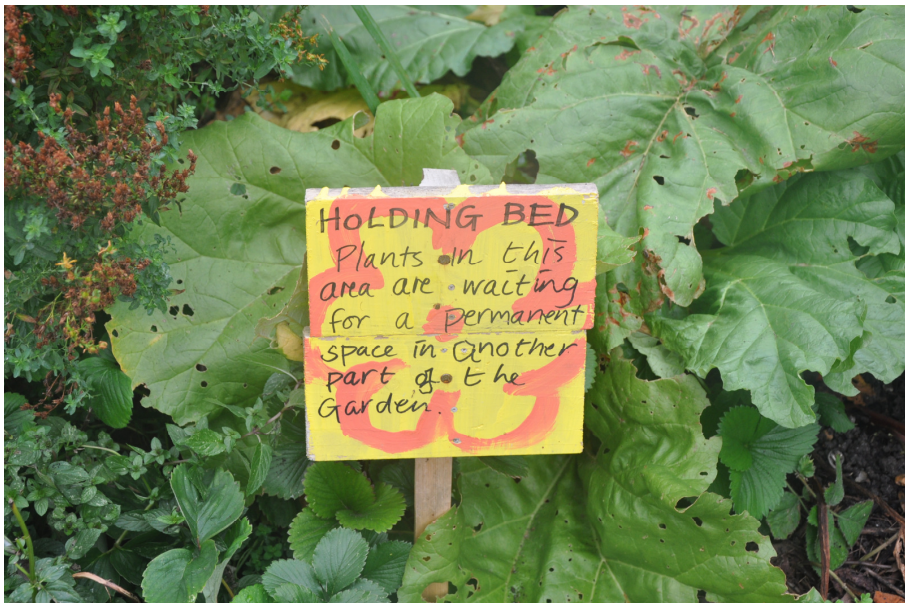 HOLDING BED
Plants in this
area are waiting
for a permanent
space in another
part of the
Garden.